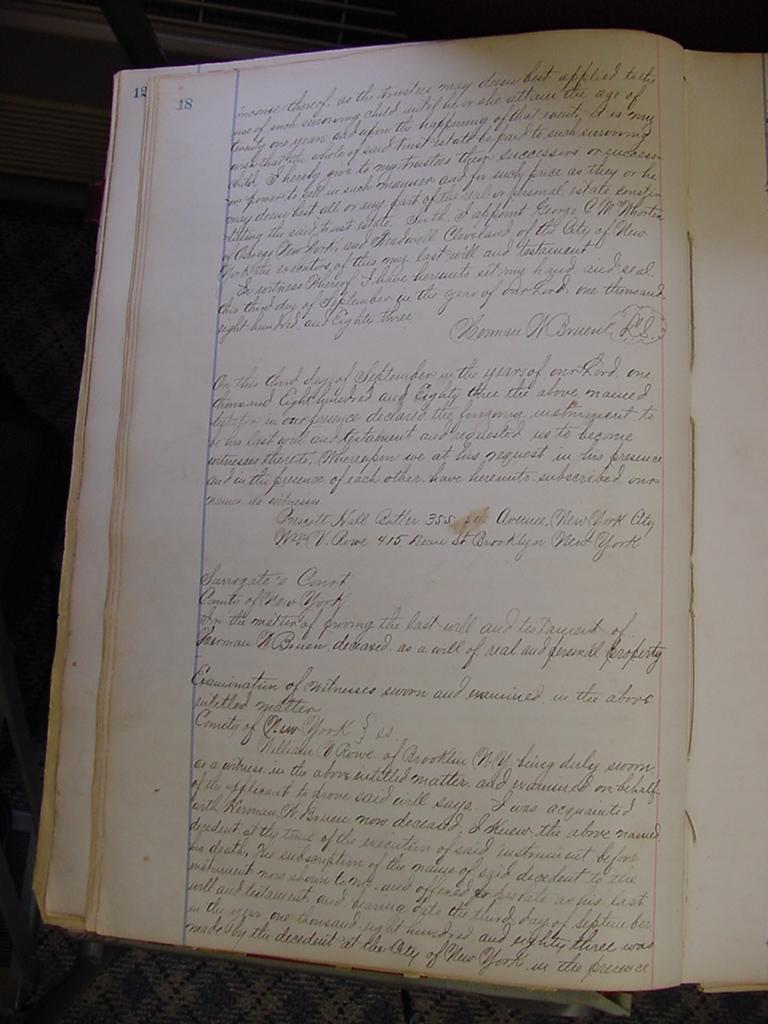 12
18
income thereof, as the trustees may deem best applied to the
use of such surviving child until he or she attain the age of
twenty one years, and upon the happening of that event, it is my
wish that the whole of said trust estate be paid to such surviving
child. I hereby give to my trustees their successors or successor
power to sell in such manner and for such price as they or he
may deem best all or any part of the real or personal estate consti
tuting the said trust estate. Sixth. I appoint George C. McWhorter
of Oswego New York, and Treadwell Cleveland of the City of New
York the executors of this my last will and testament
In witness Whereof I have hereunto set my hand and seal
this third day of September in the year of our Lord one thousand
eight hundred and Eighty three
Herman W Bruen L.S.
On this third day of September in the years of our Lord one
thousand Eight hundred and Eighty three the above named
testator in our presence declared the foregoing instrument to
be his last will and testament and requested us to become
witnesses thereto. Whereupon we at his request in his presence
and in the presence of each other have hereunto subscribed our
names as witnesses
Prescott Hall Butler 355 Avenue, New York City
Wm V. Rowe 415 Dean St Brooklyn New York
Surrogate's Court
County of New York
In the matter of proving the last will and testament of
Herman W Bruen, deceased, as a will of real and personal property
Examination of witnesses sworn and examined in the above
entitled matter
County of New York } ss
William V Rowe of Brooklin N.Y. being duly sworn
as a witness in the above intitled matter, and examined on behalf
of the applicant to prove said will says. I was acquainted
with Herman W. Bruen now deceased, I Knew the above named
decedent at the time of the execution of said instrument before
his death, The subscription of the name of said decedent to the
instrument now shown to me and offered to probate as his last
will and testament, and bearing date the third day of September
in the year one thousand eight hundred and eighty three was
made by the decedent at the City of New York in the presence